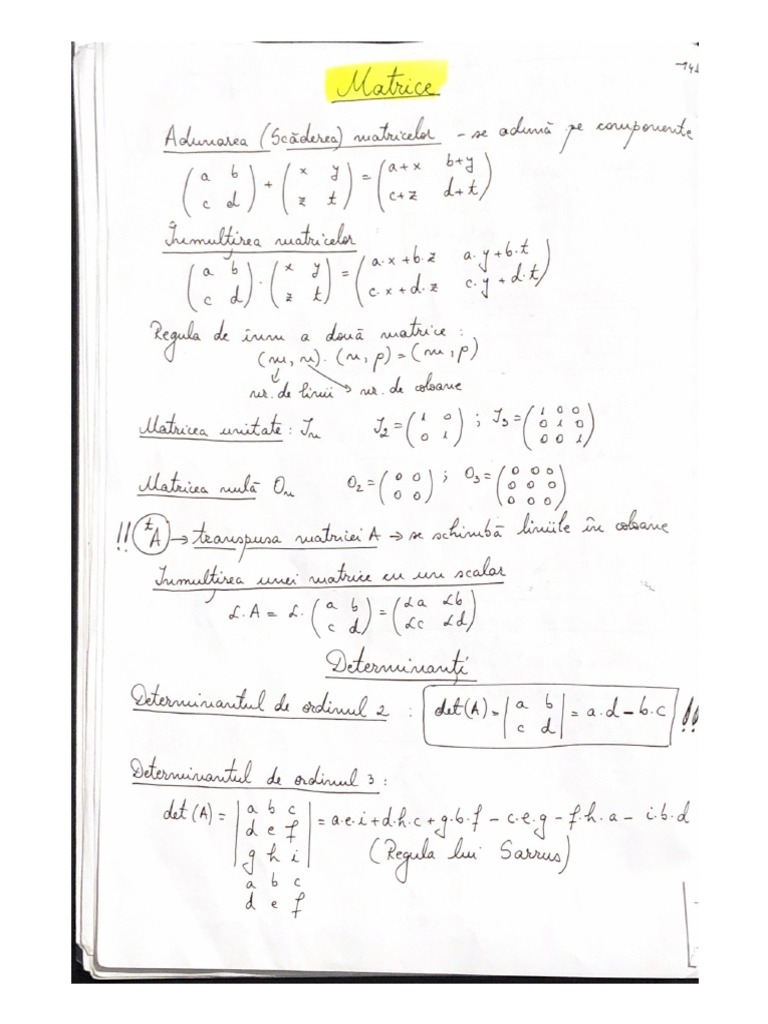 Matrice
Adunarea (Scăderea) matricelor - se adună pe componente
(a b / c d) + (x y / z t) = (a+x b+y / c+z d+t)
Înmulțirea matricelor
(a b / c d) · (x y / z t) = (a·x+b·z a·y+b·t / c·x+d·z c·y+d·t)
Regula de înm a două matrice :
(m, n) · (n, p) = (m, p)
nr. de linii nr. de coloane
Matricea unitate : In I2 = (1 0 / 0 1) ; I3 = (1 0 0 / 0 1 0 / 0 0 1)
Matricea nulă On O2 = (0 0 / 0 0) ; O3 = (0 0 0 / 0 0 0 / 0 0 0)
!! ᵗA → transpusa matricei A → se schimbă liniile în coloane
Înmulțirea unei matrice cu un scalar
α·A = α·(a b / c d) = (αa αb / αc αd)
Determinanți
Determinantul de ordinul 2 : det(A) = |a b / c d| = a·d - b·c !!
Determinantul de ordinul 3 :
det(A) = |a b c / d e f / g h i| = a·e·i + d·h·c + g·b·f - c·e·g - f·h·a - i·b·d
(Regula lui Sarrus)
a b c
d e f